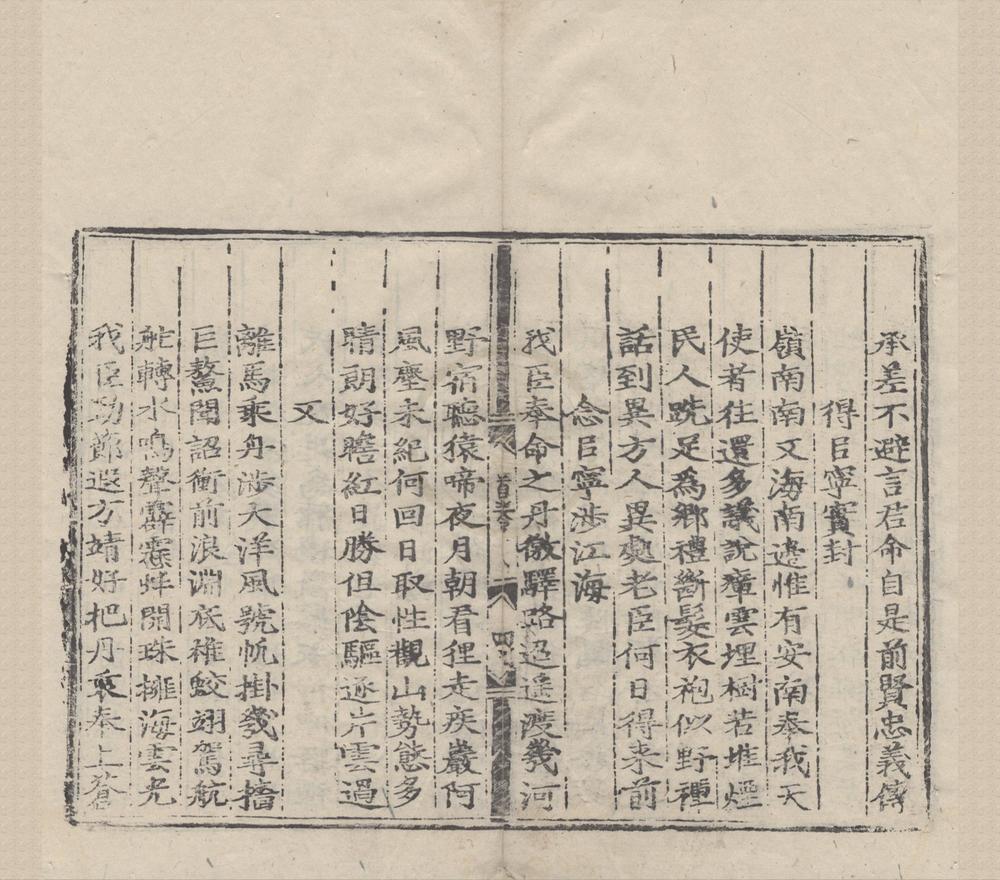 承差不避言君命自是前賢忠義傳
得臣寧賓封
嶺南南又海南邊惟有安南奉我天
使者往還多議說瘴雲埋樹若堆煙
民人跣足為鄉禮斷髮衣袍似野種
話到異方人異處老臣何日得來前
念臣寧涉江海
我臣奉命之丹徼驛路迢遥渡幾河
首卷
四
野宿聽猿啼夜月朝看狸走疾巖阿
風塵未紀何回日取性觀山勢態多
晴朗好瞻紅日勝但陰驅逐片雲過
又
離馬乘舟涉大洋風號帆掛幾尋檣
巨鰲聞詔衝前浪淵底稚蛟翊駕航
舵轉水鳴聲霹靂蚌開珠擁海雲光
我臣勁節遐方靖好把丹衷奉上蒼